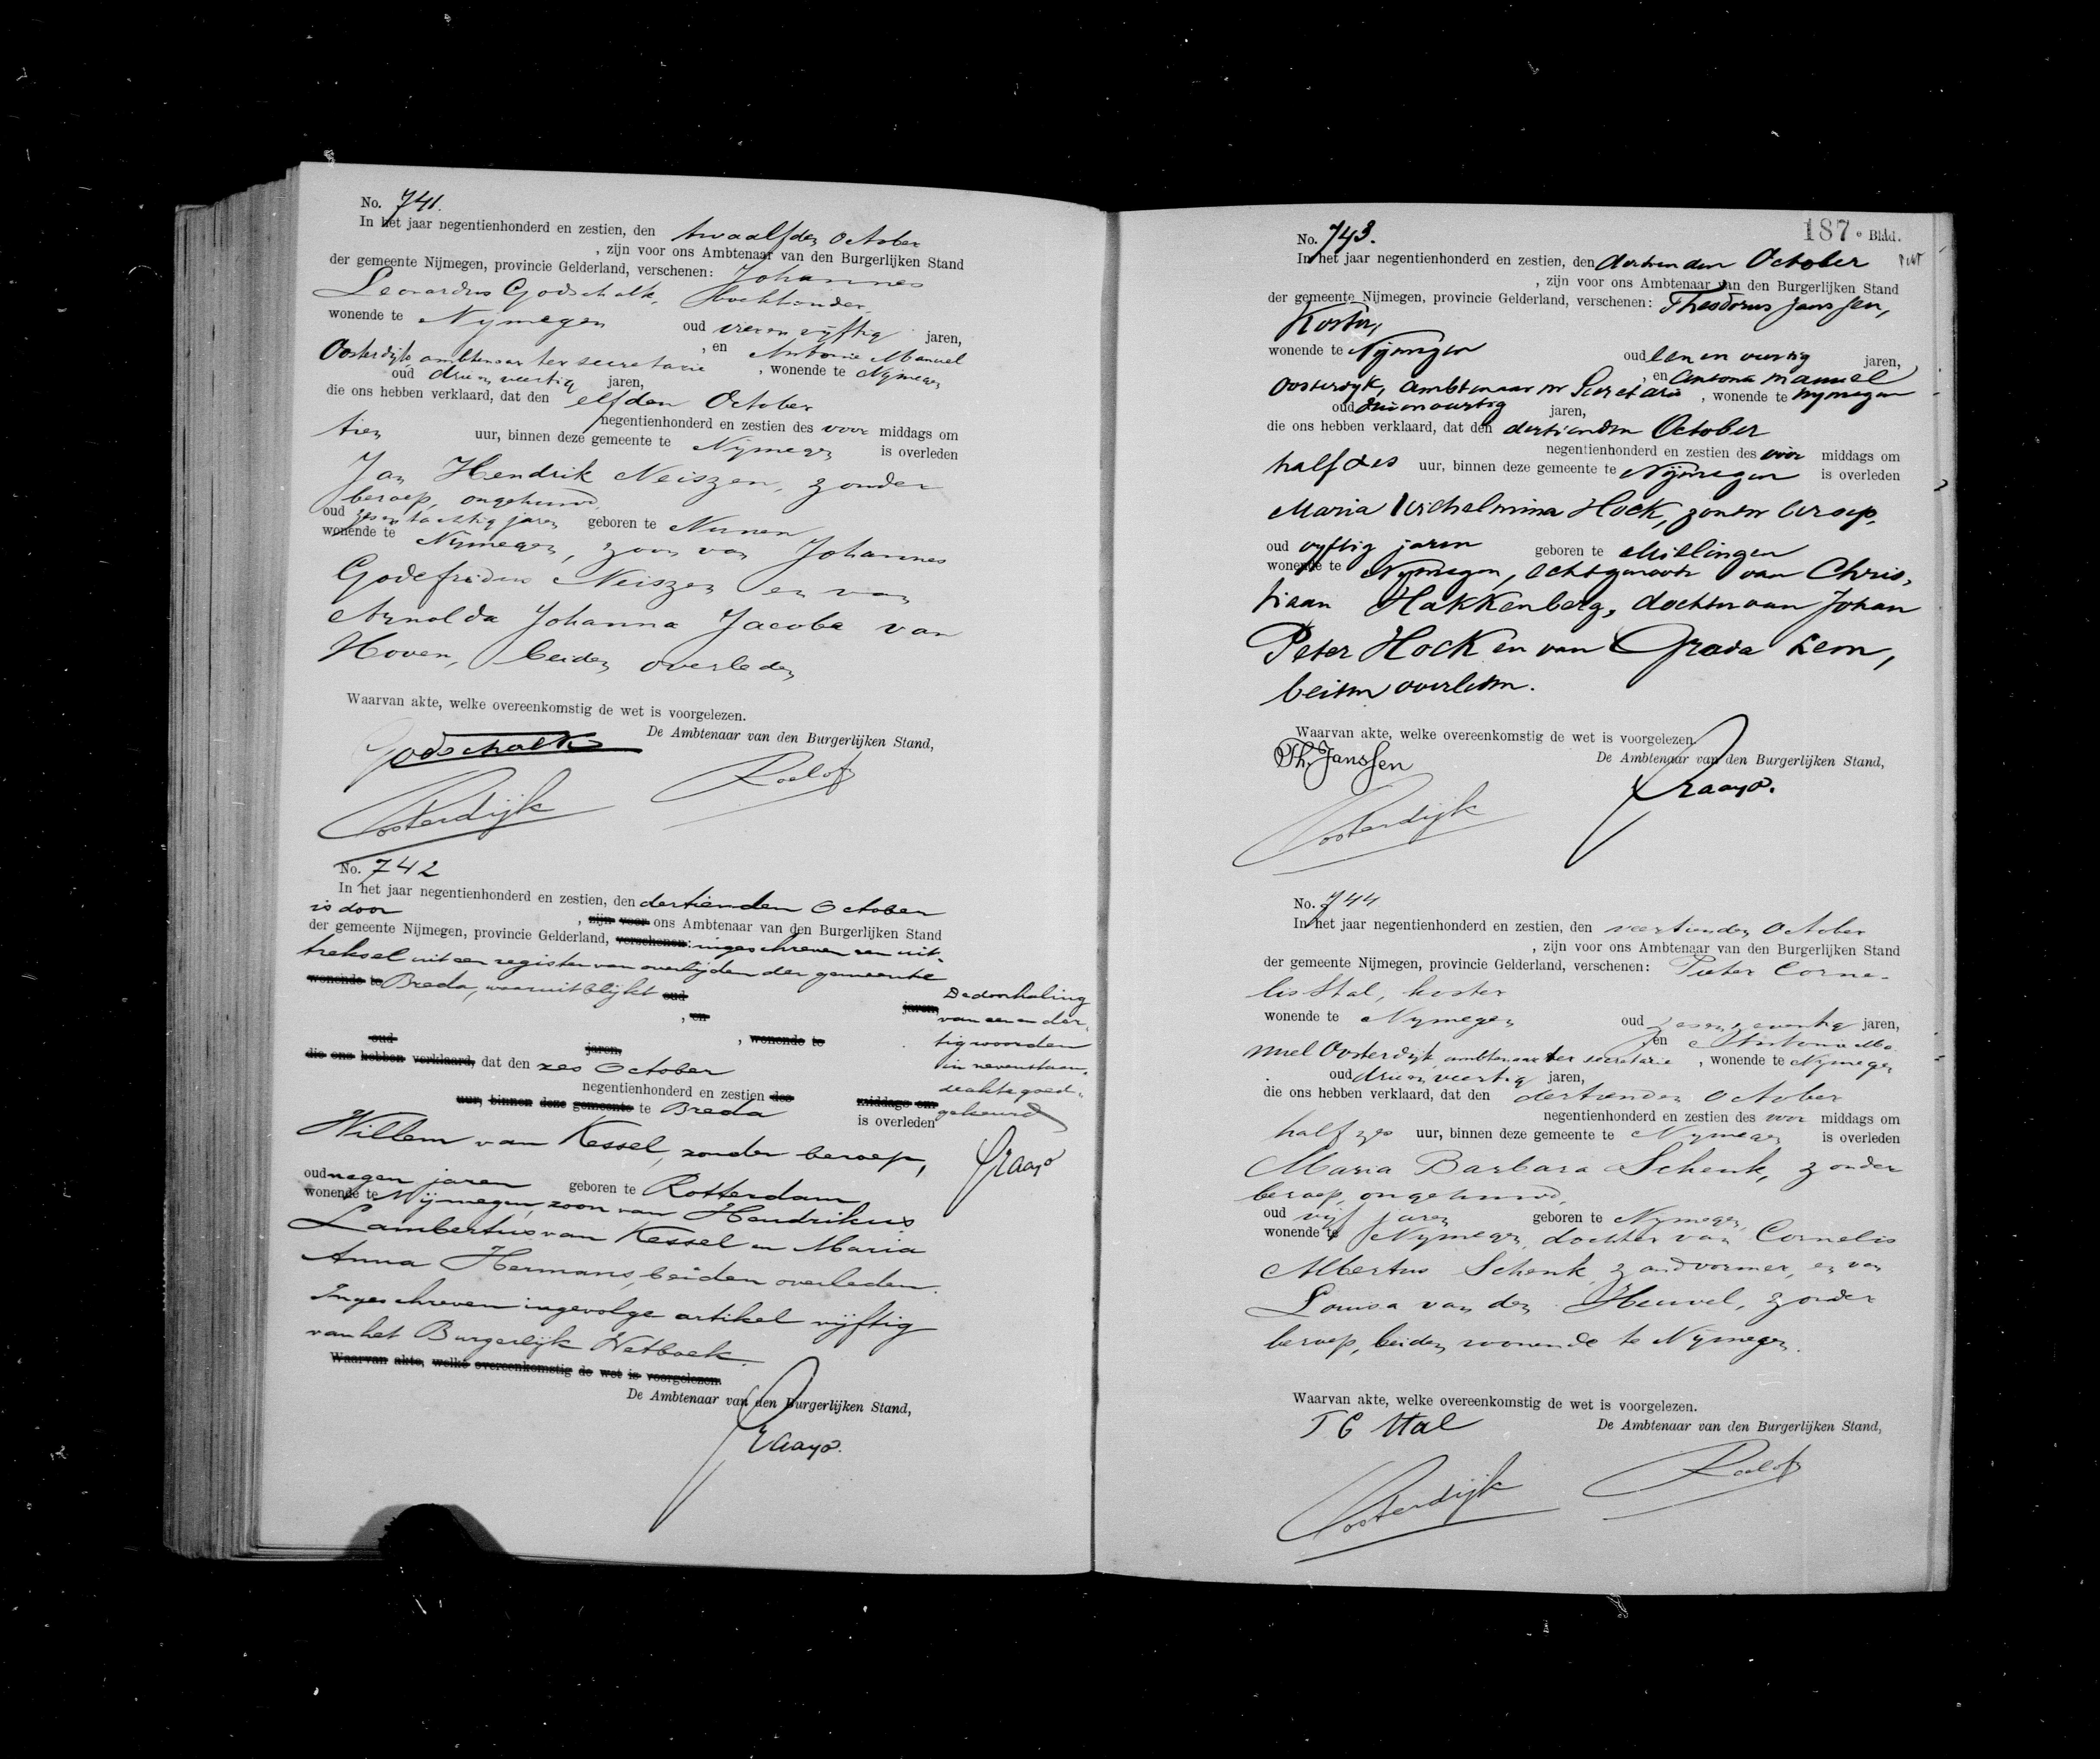 No. 741.
In het jaar negentienhonderd en zestien, den twaalfden October
, zijn voor ons Ambtenaar van den Burgerlijken Stand
der gemeente Nijmegen, provincie Gelderland, verschenen: Johannes
Leonardus Godschalk, boekhouder,
wonende te Nijmegen oud vier en vijftig jaren,
, en Antonie Manuel
Oosterdijk, ambtenaar ter secretarie , wonende te Nijmegen
oud drie en veertig jaren,
die ons hebben verklaard, dat den elfden October
negentienhonderd en zestien des voor middags om
tien uur, binnen deze gemeente te Nijmegen is overleden
Jan Hendrik Neiszen, zonder
beroep, ongehuwd,
oud zes en tachtig jaren geboren te Nunen,
wonende te Nijmegen, zoon van Johannes
Godefridus Neiszen en van
Arnolda Johanna Jacoba van
Hoven, beiden overleden
Waarvan akte, welke overeenkomstig de wet is voorgelezen.
De Ambtenaar van den Burgerlijken Stand,
Godschalk
Roelofs
Oosterdijk
No. 742
In het jaar negentienhonderd en zestien, den dertienden October
is door , zijn voor ons Ambtenaar van den Burgerlijken Stand
der gemeente Nijmegen, provincie Gelderland, verschenen: ingeschreven een uit-
treksel uit een register van overlijden der gemeente
wonende te Breda, waaruit blijkt oud jaren,
, en
oud jaren, , wonende te
die ons hebben verklaard, dat den zes October
negentienhonderd en zestien des middags om
uur, binnen deze gemeente te Breda is overleden
Willem van Kessel, zonder beroep,
oud negen jaren geboren te Rotterdam,
wonende te Nijmegen, zoon van Hendrikus
Lambertus van Kessel en Maria
Anna Hermans, beiden overleden.
Ingeschreven ingevolge artikel vijftig
van het Burgerlijk Wetboek.
Waarvan akte, welke overeenkomstig de wet is voorgelezen.
De Ambtenaar van den Burgerlijken Stand,
De doorhaling
van een en der-
tig woorden
in nevenstaan-
de akte goed-
gekeurd
187e Blad.
No. 743.
In het jaar negentienhonderd en zestien, den dertienden October
, zijn voor ons Ambtenaar van den Burgerlijken Stand
der gemeente Nijmegen, provincie Gelderland, verschenen: Theodorus Janssen,
Koster,
wonende te Nijmegen oud een en veertig jaren,
, en Antonie Manuel
Oosterdijk, ambtenaar ter Secretarie , wonende te Nijmegen
oud drie en veertig jaren,
die ons hebben verklaard, dat den dertienden October
negentienhonderd en zestien des voor middags om
half zes uur, binnen deze gemeente te Nijmegen is overleden
Maria Wilhelmina Hock, zonder beroep,
oud vijftig jaren geboren te Millingen
wonende te Nijmegen, echtgenoote van Chris-
tiaan Hakkenberg, dochter van Johan
Peter Hock en van Grada Lem,
beiden overleden.
Waarvan akte, welke overeenkomstig de wet is voorgelezen.
De Ambtenaar van den Burgerlijken Stand,
Th. Janssen
Oosterdijk
No. 744
In het jaar negentienhonderd en zestien, den veertienden October
, zijn voor ons Ambtenaar van den Burgerlijken Stand
der gemeente Nijmegen, provincie Gelderland, verschenen: Pieter Corne-
lis Stal, koster
wonende te Nijmegen oud zes en zeventig jaren,
, en Antonie Ma-
nuel Oosterdijk, ambtenaar ter secretarie , wonende te Nijmegen
oud drie en veertig jaren,
die ons hebben verklaard, dat den dertienden October
negentienhonderd en zestien des voor middags om
half zes uur, binnen deze gemeente te Nijmegen is overleden
Maria Barbara Schenk, zonder
beroep, ongehuwd,
oud vijf jaren geboren te Nijmegen,
wonende te Nijmegen, dochter van Cornelis
Albertus Schenk, zandvormer, en van
Louisa van den Heuvel, zonder
beroep, beiden wonende te Nijmegen.
Waarvan akte, welke overeenkomstig de wet is voorgelezen.
De Ambtenaar van den Burgerlijken Stand,
P C Stal
Roelofs
Oosterdijk